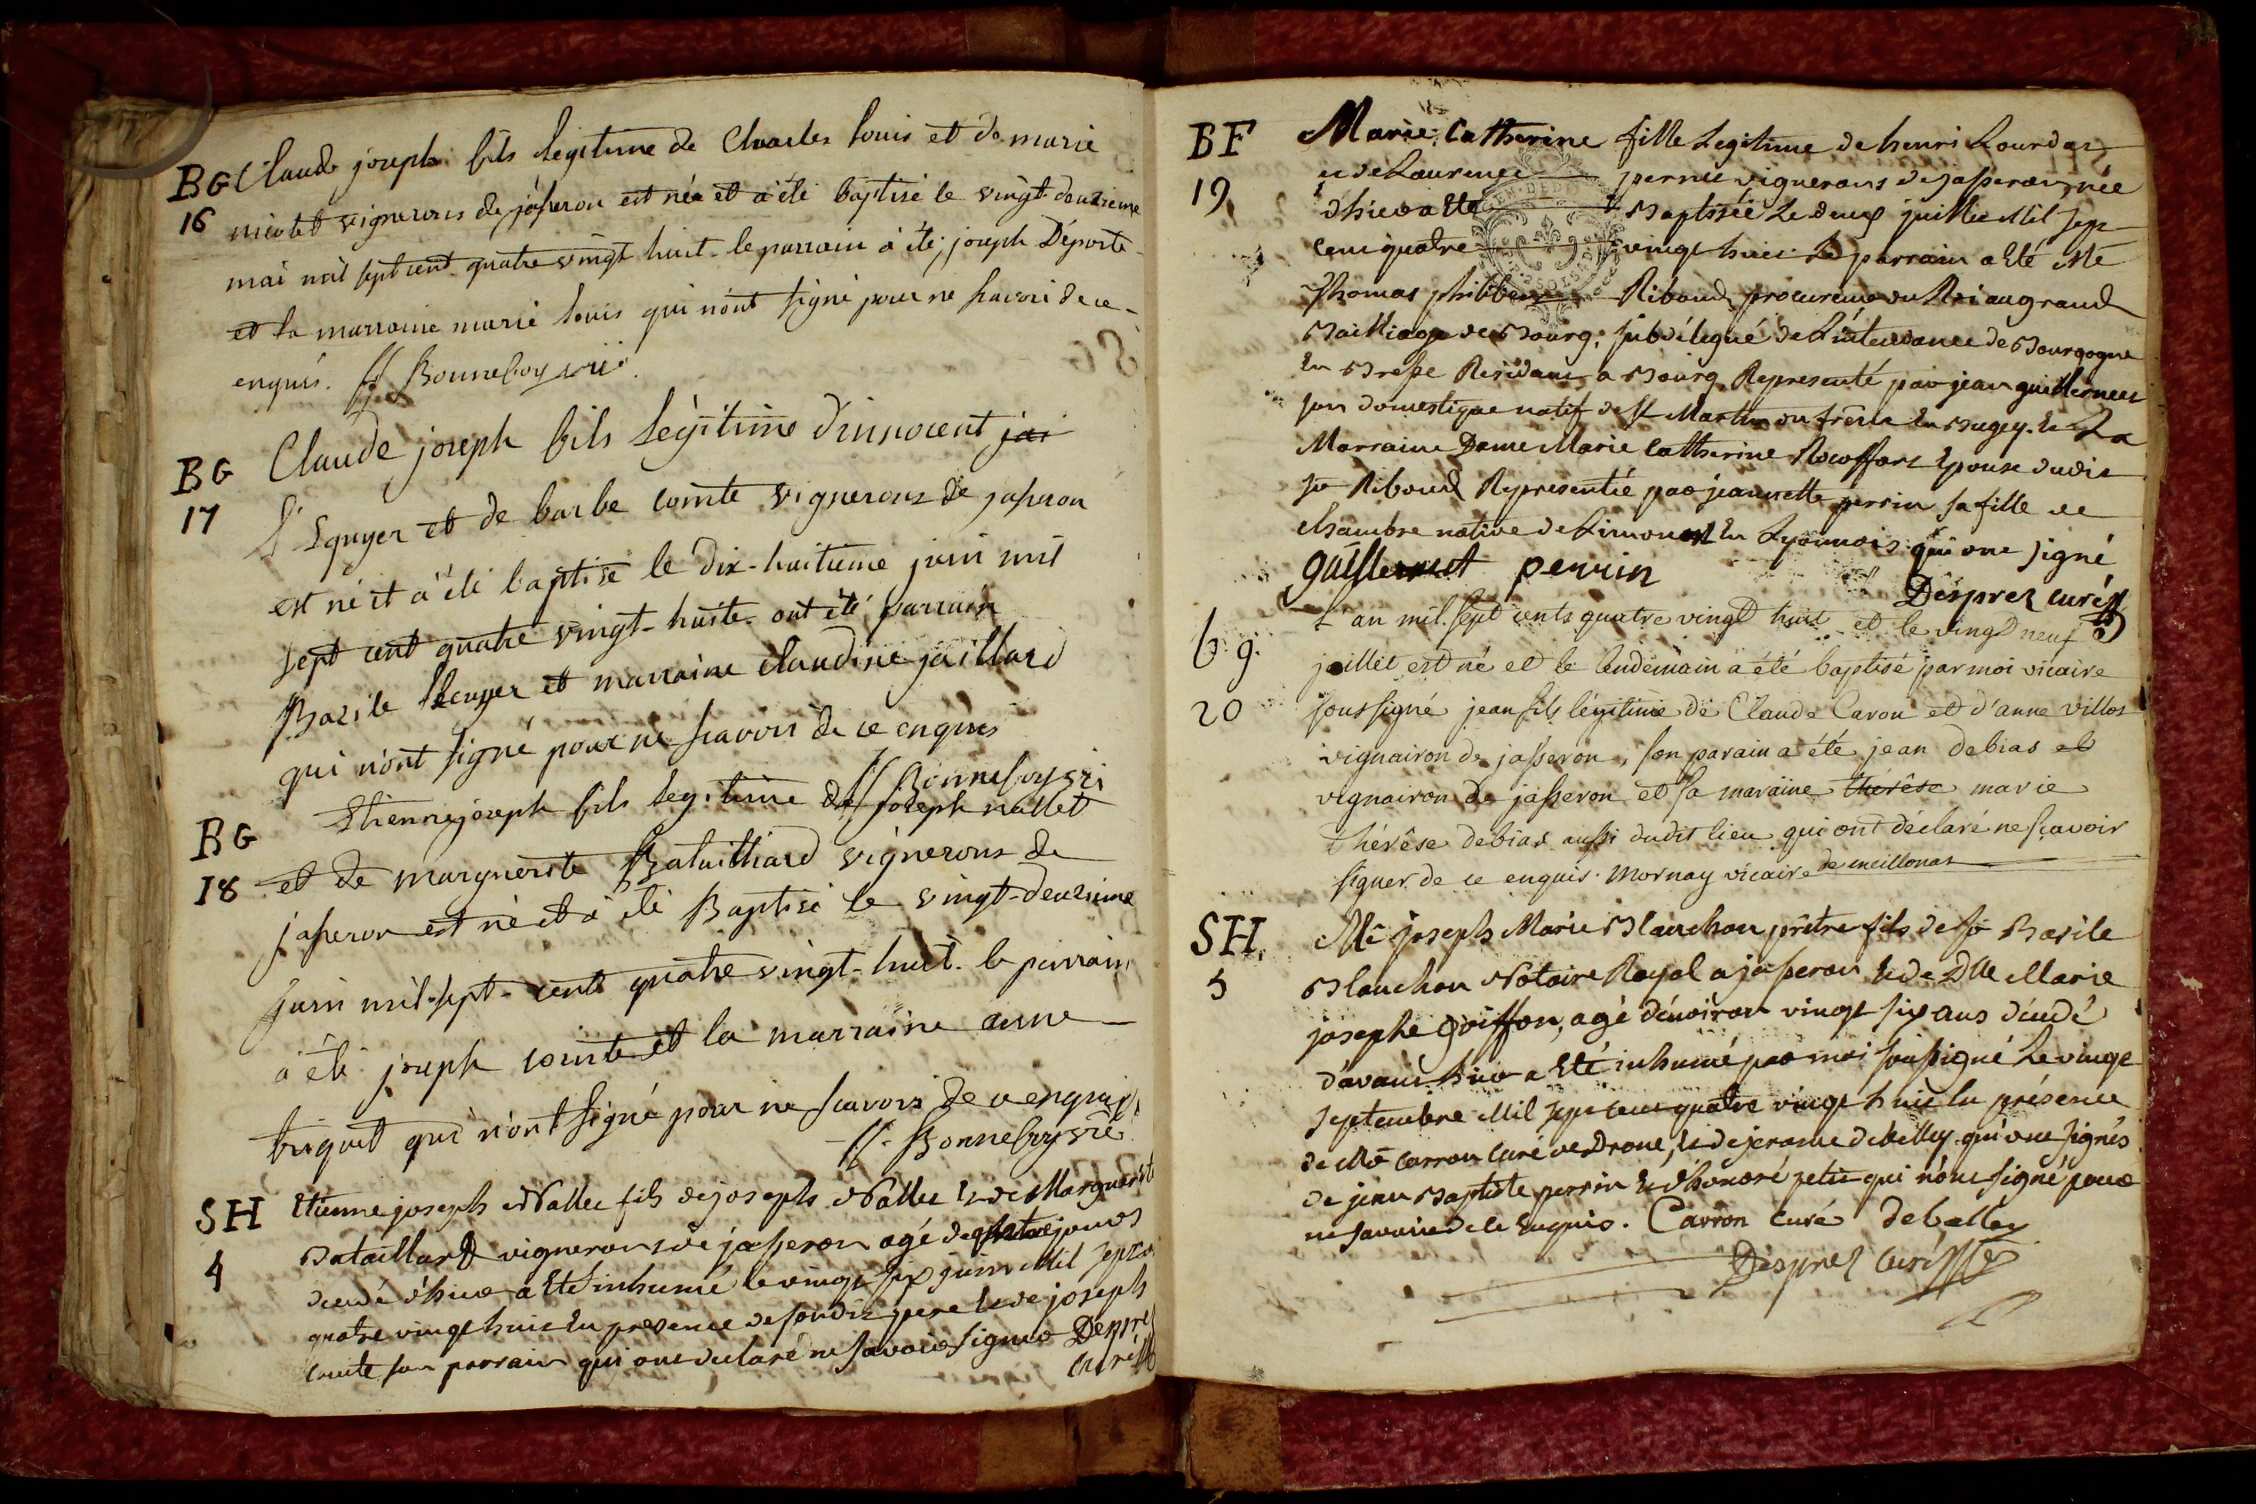 BG Claude joseph fils légitime de Charles louis et de marie
16 nicolet vignerons de jasseron est née et à été baptisé le vingt-deuxieme
mai mil sept cent quatre vingt huit - le parrain à été joseph Déporte
et la marraine marie louis qui n'ont signé pour ne scavoir de ce
enquis. Bonneboy vic
BG Claude joseph fils légitime d'innocent jai
17 L'Equyer et de barbe comte vignerons de jasseron
est né et à été baptisé le dix-huitieme juin mil
sept cent quatre vingt-huite ont été parrain
Bazile lecuyer et marraine claudine jaillard
qui n'ont signé pour ne scavoir de ce enquis
Bonneboy vic
BG Etienne joseph fils legitime de joseph nallet
18 et de marguerite Bataillard vignerons de
jasseron est né et à été Baptisé le vingt-deuxieme
juin mil-sept-cent quatre vingt-huit. le parrain
à été joseph comte et la marraine anne
briquet qui n'ont signé pour ne scavoir de ce enquis
Bonneboy vic
SH Etienne joseph Nallet fils de joseph Nallet et de Marguerite
4 Bataillard vignerons de jasseron agé de quatre jours
décédé d'hier a Eté inhumé le vingt six juin Mil sept ce
quatre vingt huit En presence de sondit pere et de joseph
comte son parrain qui ont declaré ne savoir signer Desprez
curé
BF Marie Catherine fille Legitime de henri Lourdas
19 et de Laurence perret vignerons de jasseron, née
d'hier a Eté Baptisée Le deux juillet Mil sept
cent quatre vingt huit Le parrain a Eté Me
Thomas philibert Riboud procureur du Roi au grand
Bailliage de Bourg, subdélegué de L'intendance de Bourgogne
En Bresse Residant a Bourg Representé par jean guillermet
son domestique natif de St Martin du frêne En Bugey. et La
Marraine Dame Marie Catherine Rocoffort Epouse dudit
Sr Riboud Representée par jeannette perrin sa fille de
chambre native de Limonest En Lyonnois qui ont signé
guillermet perrin
Desprez curé
b. g. L'an mil sept cents quatre vingt huit et le vingt neuf
juillet est né et le lendemain a été baptisé par moi vicaire
20 soussigné jean fils légitime de Claude Caron et d'anne villot
vignairon de jasseron, son parain a été jean debias et
vignairon de jasseron et sa maraine thérèse marie
thérèse debias aussi dudit lieu qui ont déclaré ne sçavoir
signer de ce enquis. Mornay vicaire de meillonas
SH. Me joseph Marie Blanchon prêtre fils de fû Basile
5 Blanchon Notaire Royal a jasseron et de Dlle Marie
josephe goiffon, agé d'environ vingt six ans décédé
d'avant hier a Eté inhumé par moi soussigné Le vingt
septembre Mil sept cent quatre vingt huit En présence
de Me carron curé de Drom, et de jerome debelley qui ont signés
de jean Baptiste perrin et d'honoré petit qui n'ont signé pour
ne savoir de ce Enquis. Carron curé debelley
Desprez curé